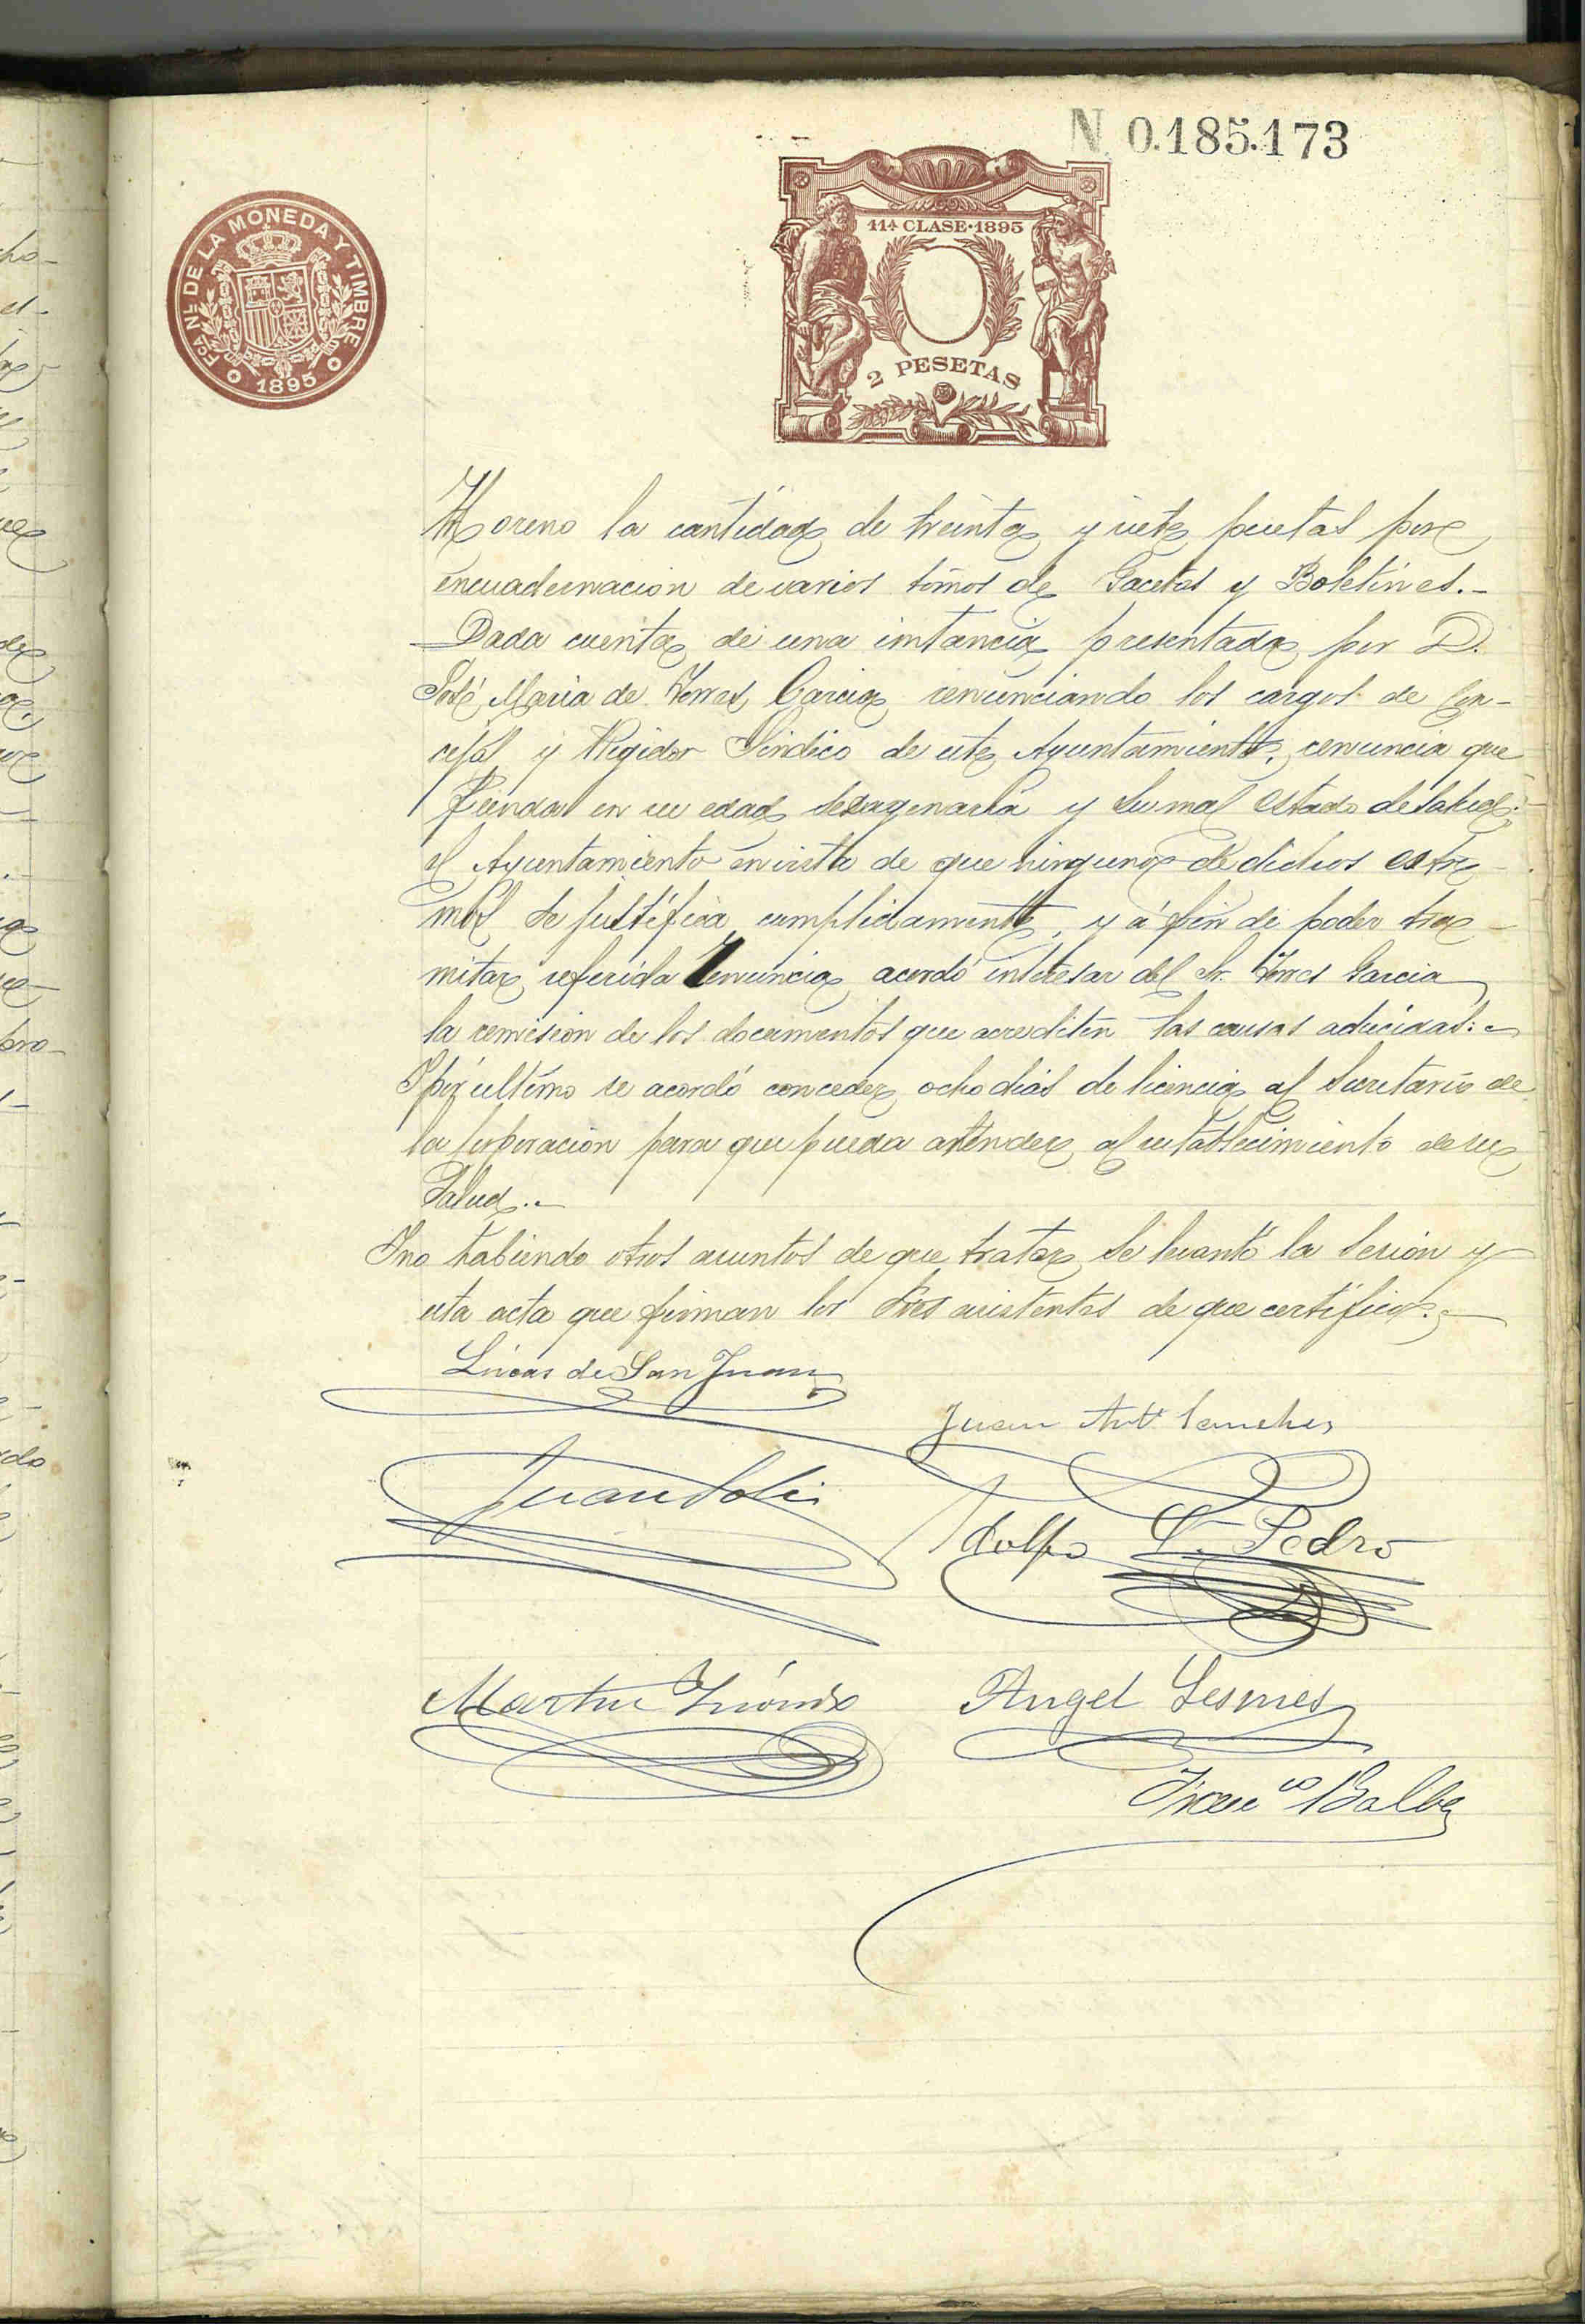 N. 0.185.173
FCA NL DE LA MONEDA Y TIMBRE
1895
11ª CLASE·1895
2 PESETAS
Moreno la cantidad de treinta y siete pesetas por
encuadernacion de varios tomos de Gacetas y Boletines.-
Dada cuenta de una instancia presentada por D.
José Maria de Torres Garcia renunciando los cargos de Con-
cejal y Regidor Sindico de este Ayuntamiento, renuncia que
funda en su edad sexagenaria y su mal estado de salud:
el Ayuntamiento en vista de que ninguno de dichos estre-
mos se justifica cumplidamente, y á fin de poder tra-
mitar referida renuncia acordó interesar del Sr. Torres Garcia
la remision de los documentos que acrediten las causas aducidas:-
Y por ultimo se acordó conceder ocho dias de licencia al Secretario de
la Corporacion para que pueda atender al restablecimiento de su
Salud.-
Y no habiendo otros asuntos de que tratar se levantó la sesion y
esta acta que firman los Sres asistentes de que certifico.-
Lucas de San Juan
Juan Antº Sanches
Juan Solis
Adolfo S. Pedro
Martin
Angel Lesmes
Francº Balba